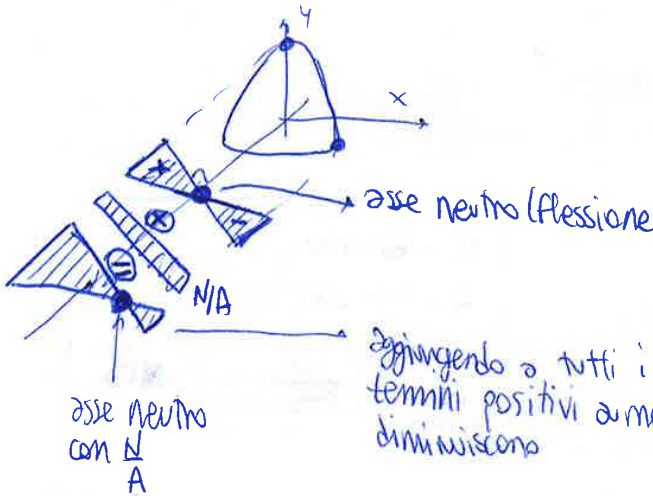 y
x
+
-
+
=
asse neutro (flessione
N/A
aggiungendo a tutti i
termini positivi
diminuiscono
asse neutro
con N
A